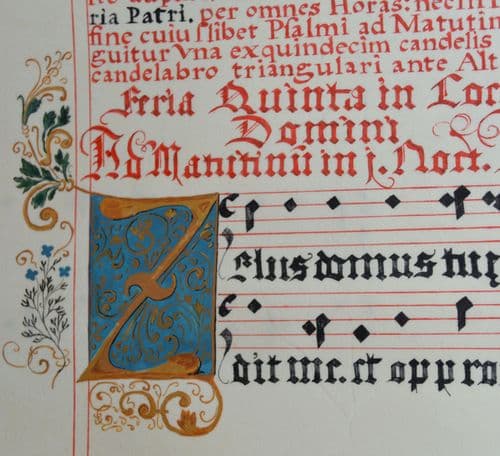 ria Patri. per omnes Horas: nec in
fine cuiuslibet Psalmi ad Matutin
guitur vna exquindecim candelis
candelabro triangulari ante Alt
Feria Quinta in Coe
Domini
Ad Matutinū in j. Noct.
Zelus domus tuę
dit me. et oppro